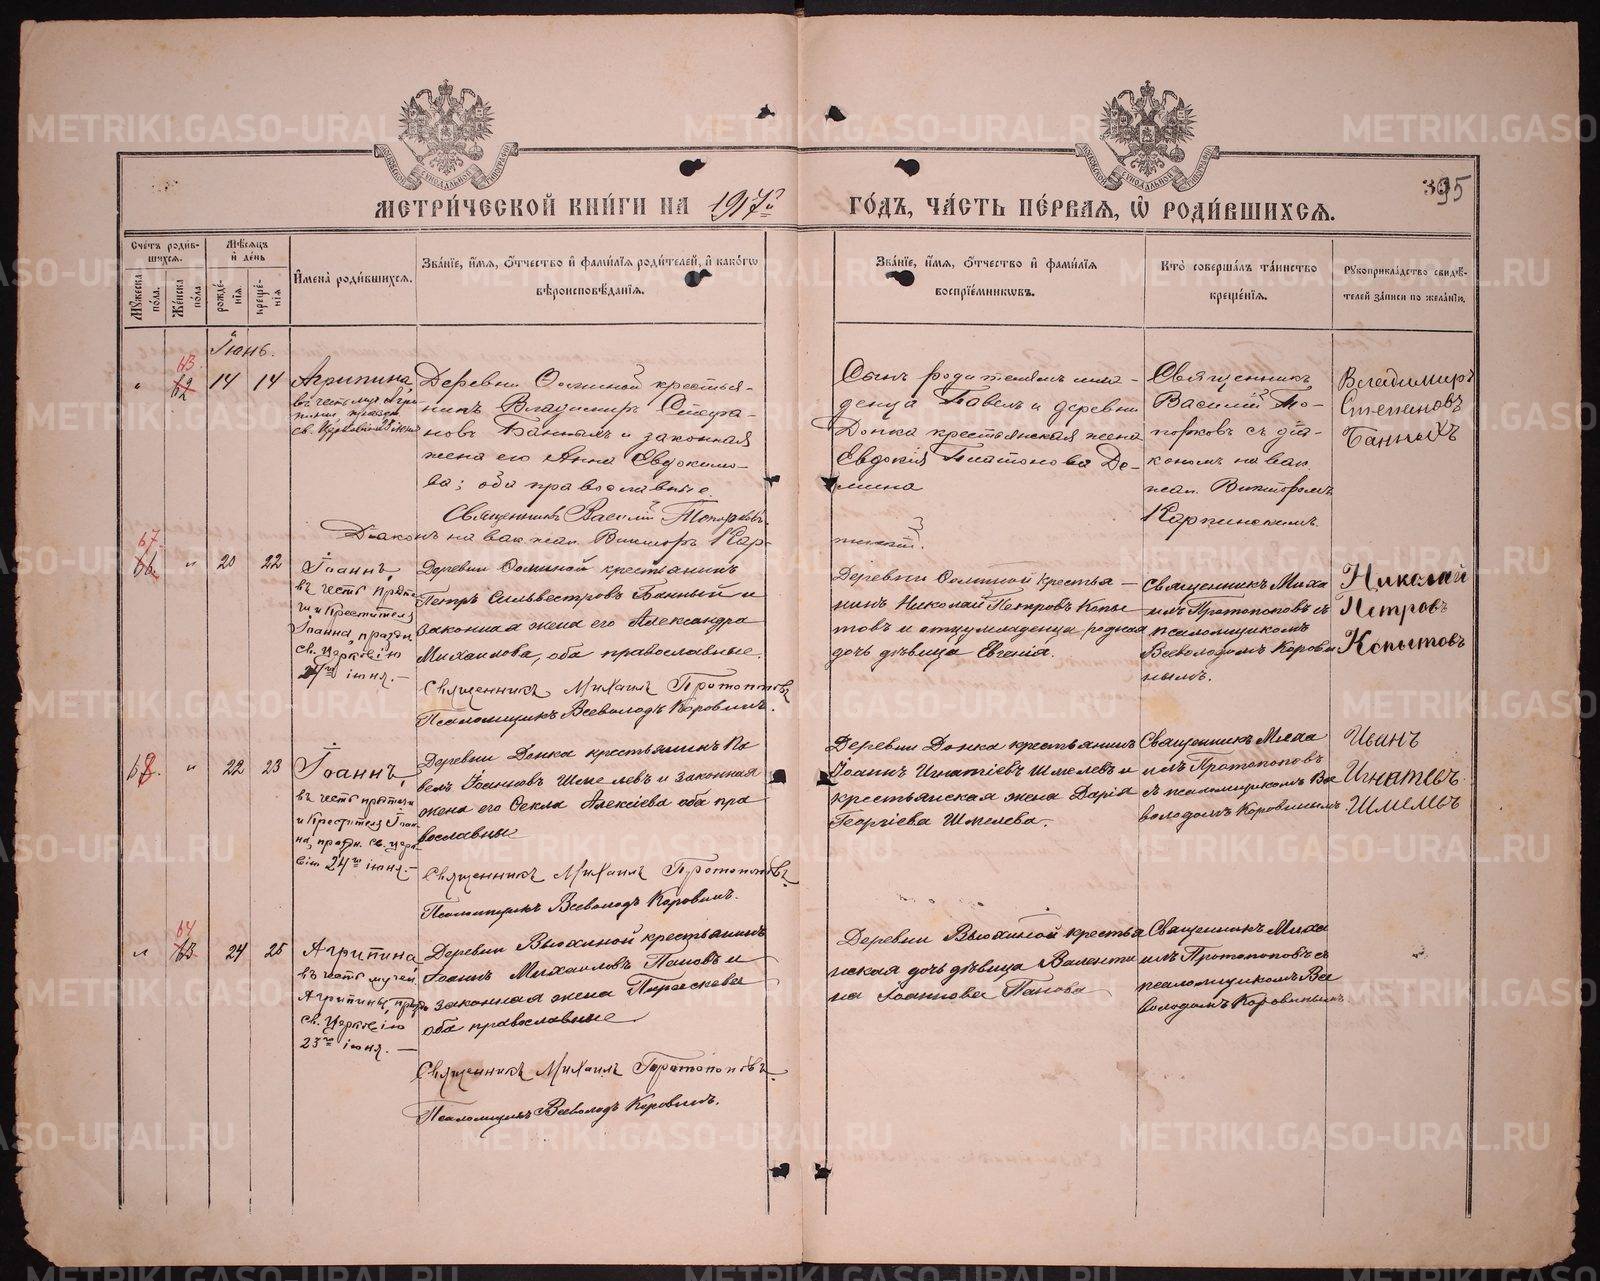 МЕТРИ́ЧЕСКОЙ КНИ́ГИ НА 1917й ГО́ДЪ, ЧА́СТЬ ПЕ́РВАЯ, Ѡ҆ РОДИ́ВШИХСѦ.
395
Сче́тъ роди́в-
шихсѧ.
Мѹ́жеска по́ла.
Же́нска по́ла
Мѣ́сѧцъ и҆ де́нь
рожде́-
нїѧ.
креще́-
нїѧ
И҆мена̀ роди́вшихсѧ.
Зва́нїе, и҆́мѧ, ѻ҆́тчество и҆ фами́лїѧ роди́телей, и҆ како́гѡ
вѣроисповѣ́данїѧ.
Зва́нїе, и҆́мѧ, ѻ҆́тчество и҆ фами́лїѧ
воспрїе́мникѡвъ.
Кто̀ соверша́лъ та́инство
креще́нїѧ.
Рѹкоприкла́дство свидѣ́-
телей за́писи по жела́нїю.
Іюнь.
63
62
14 14
Агрипина,
въ честь муч. Агри-
св. Церковію 23 июня
Деревни Соминой крестья-
нинъ Владимиръ Стефа-
новъ Банныхъ и законная
жена его Анна Евдокимо-
ва; оба православные.
Священникъ Василій Топорковъ
Діаконъ на вак. псал. Викторъ Кар-
пинскій.
Сынъ родителямъ мла-
денца Павелъ и деревни
Донка крестьянская жена
Евдокія Платонова Де-
мина
Священникъ
Василій То-
порковъ съ діа-
кономъ на вак.
псал. Викторомъ
Карпинскимъ.
Владимиръ
Степановъ
Банныхъ
67.
66. " 20 22
Іоаннъ,
въ честь Предте-
чи и Крестителя
Іоанна, праздн.
св. Церковію
24го іюня.—
Деревни Соминой крестьянинъ
Петръ Сильвестровъ Банный и
законная жена его Александра
Михаилова, оба православные.
Священникъ Михаилъ Протопоповъ
Псаломщикъ Всеволодъ Коровинъ.
Деревни Соминой крестья-
нинъ Николай Петровъ Копы
товъ и отцу младенца родная
дочь дѣвица Евгенія.
Священникъ Миха
илъ Протопоповъ съ
псаломщикомъ
Всеволодомъ Корови
нымъ.
Николай
Петровъ
Копытовъ
68. " 22 23
Іоаннъ,
въ честь предтечи
и Крестителя Іоан
на, праздн. св. церк
вію 24го іюня.—
Деревни Донка крестьянинъ Па
велъ Іоанновъ Шмелевъ и законная
жена его Ѳекла Алексіева оба пра
вославны
Священникъ Михаилъ Протопоповъ.
Псаломщикъ Всеволодъ Коровинъ.
Деревни Донка крестьянинъ
Іоаннъ Игнатіевъ Шмелевъ и
крестьянская жена Дарія
Георгіева Шмелева.
Священникъ Миха
илъ Протопоповъ
съ псаломщикомъ Все
володомъ Коровинымъ.
Иванъ
Игнатевъ
Шмелевъ
64
" 63 24 25
Агрипина
въ честь мучен.
Агрипины, празд
св. Церковію
23го іюня.—
Деревни Вьюхиной крестьянинъ
Іоаннъ Михаиловъ Пановъ и
законная жена Параскева
оба православные
Священникъ Михаилъ Протопоповъ.
Псаломщикъ Всеволодъ Коровинъ.
Деревни Вьюхиной крестья
нская дочь дѣвица Валенти
на Іоаннова Панова
Священникъ Миха
илъ Протопоповъ съ
псаломщикомъ Все
володомъ Коровинымъ.
METRIKI.GASO-URAL.RU